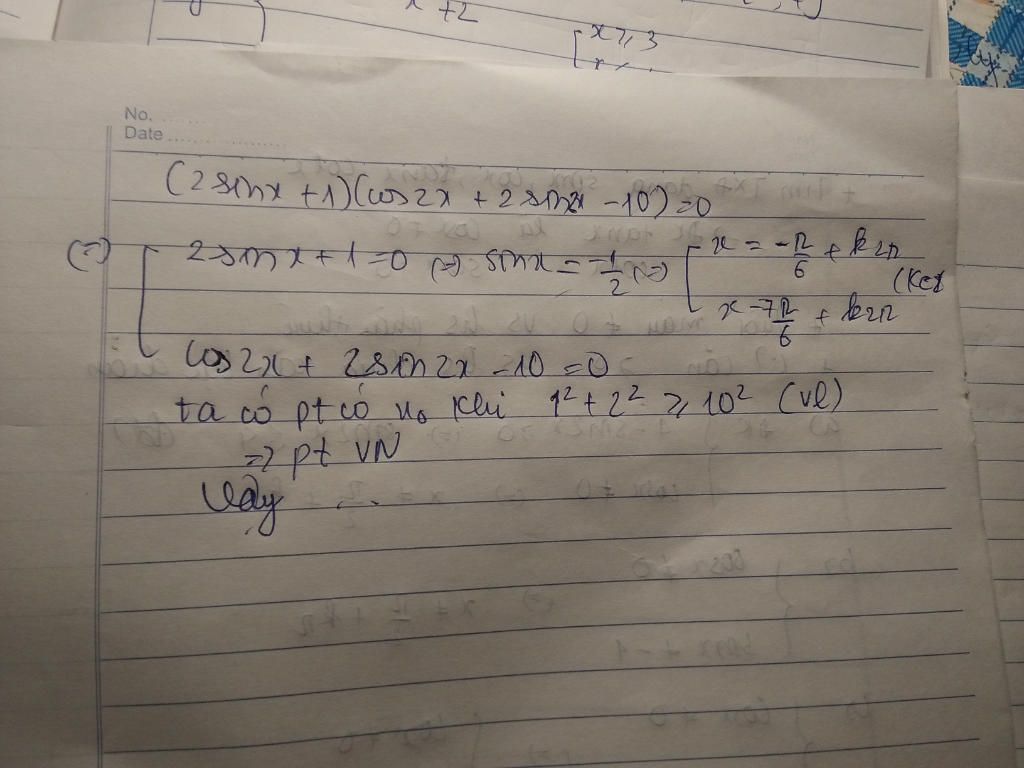 x+2
x ⩾ 3
No. ......
Date ..................
(2sinx + 1)(cos2x + 2sin2x - 10) = 0
(=) [ 2sinx + 1 = 0 (=) sinx = -1/2 (=) [ x = -π/6 + k2π
x = 7π/6 + k2π
(k∈Z
cos2x + 2sin2x - 10 = 0
ta có pt có no khi 1² + 2² ⩾ 10² (vl)
=> pt VN
Vậy ...